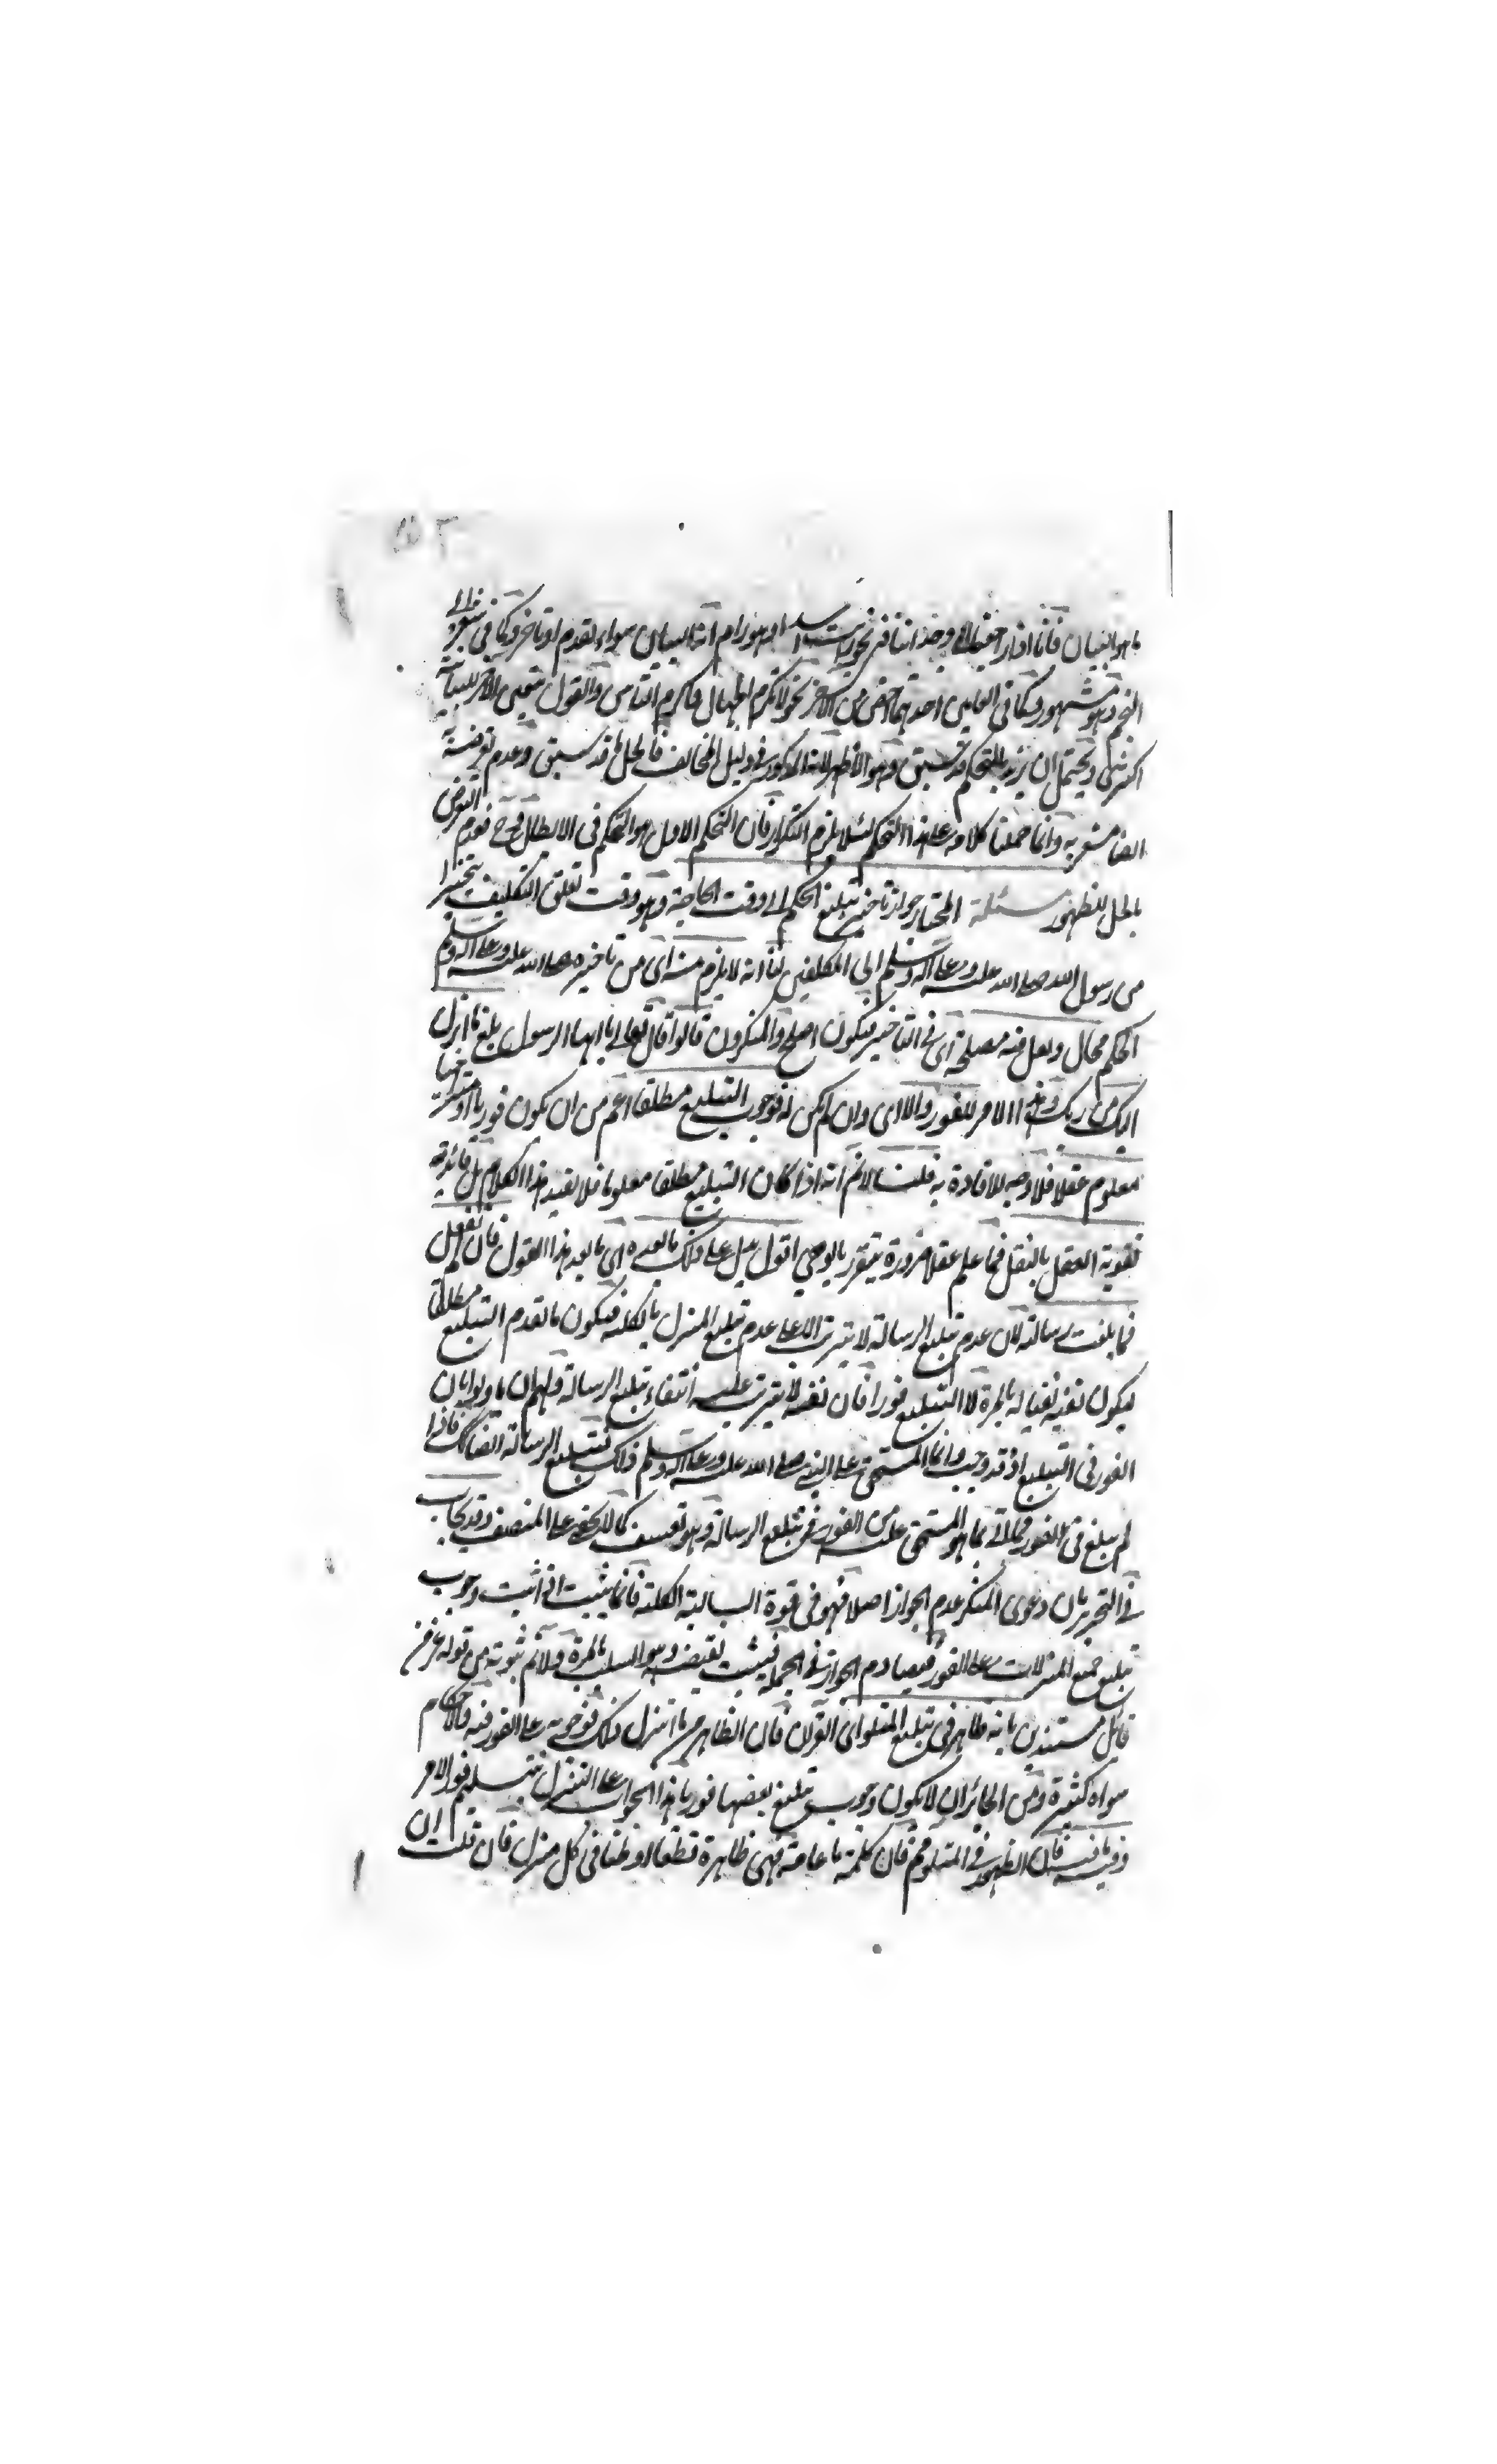 ما هو البيان فانا اذا راجعنا الى وجداننا في نحو رأيت اسدا وهو رام انه البيان سواء تقدم او تاخر وكما في
النجم وهو مشهور وكما في العامين احدهما اخص من الآخر نحو لا تكرم الجهال واكرم الناس والقول بتعيين الآخر للبيان
اكثري ويحتمل ان يريد بالتحكم قد سبق وهو الاظهر لانه المذكور في دليل المخالف فالحل ما قد سبق وعدم تعرضه
ايضا مشعر به وانما حملنا كلامه على هذا التحكم لئلا يلزم التكرار فان التحكم الاول هو التحكم في الابطال وح فعدم التعرض
بالحل للظهور مسئلة المختار جواز تاخير تبليغ الحكم الى وقت الحاجة وهو وقت تعلق التكليف تنجيزا
من رسول الله صلى الله عليه وعلى آله وسلم الى المكلفين لنا انه لا يلزم منه اى من تاخيره صلى الله عليه وعلى اله وسلم
الحكم محال ولعل فيه مصلحة اى في التاخير فيكون اصلح والمنكرون قالوا قال تعالى يا ايها الرسول بلغ ما انزل
اليك من ربك وهذا الامر للفور والا اى وان لم يكن له فوجوب التبليغ مطلقا اعم من ان يكون فوريا او متراخيا
معلوم عقلا فلا وجه للافادة به قلنا لانم انه اذا كان التبليغ مطلقا معلوما فلا يفيد هذا الكلام بل فائدته
تقوية العقل بالنقل فما علم عقلا ضرورة يتقرر بالوحي اقول يدل على ذلك ما بعده اى ما بعد هذا القول فان لم تفعل
فما بلغت رسالته لان عدم تبليغ الرسالة لا يترتب الا على عدم تبليغ المنزل بالكلية فيكون ما تقدم التبليغ مطلقا
ليكون نفيه نفيا له بالمرة لا التبليغ فورا فان نفيه لا يترتب عليه انتفاء تبليغ الرسالة ولهم ان ياولوا بان
الفور في التبليغ اذ قد وجب وانما المستحق على النبي صلى الله عليه وعلى آله وسلم ذلك فتبليغ الرسالة ايضا كك فاذا
لم يبلغ في الفور فما اتى بما هو المستحق عليه من الفور في تبليغ الرسالة وهو تعسف كما لا يخفى على المنصف وقد يجاب
في التحرير بان دعوى المنكر عدم الجواز اصلا فهو في قوة السالبة الكلية فانما يثبت اذا اثبت وجوب
تبليغ جميع المنزلات على الفور فيصادم الجواز في الجملة فيثبت نقيضه وهو السلب بالمرة ولانم ثبوته من قوله عز من
قائل مستندين بانه ظاهر في تبليغ المتلو اى القرآن فان الظاهر من ما انزل ذلك فوجوبه على الفور فيه والاحكام
سواه كثيرة ومن الجائز ان لا يكون وجوب تبليغ بعضها فوريا هذا الجواب على التنزل بتسليم فور الامر
وفيه ما فيه فان الظهور في المتلو مم فان كلمة ما عامة فهي ظاهرة قطعا او ظنا في كل منزل فان قلت ان